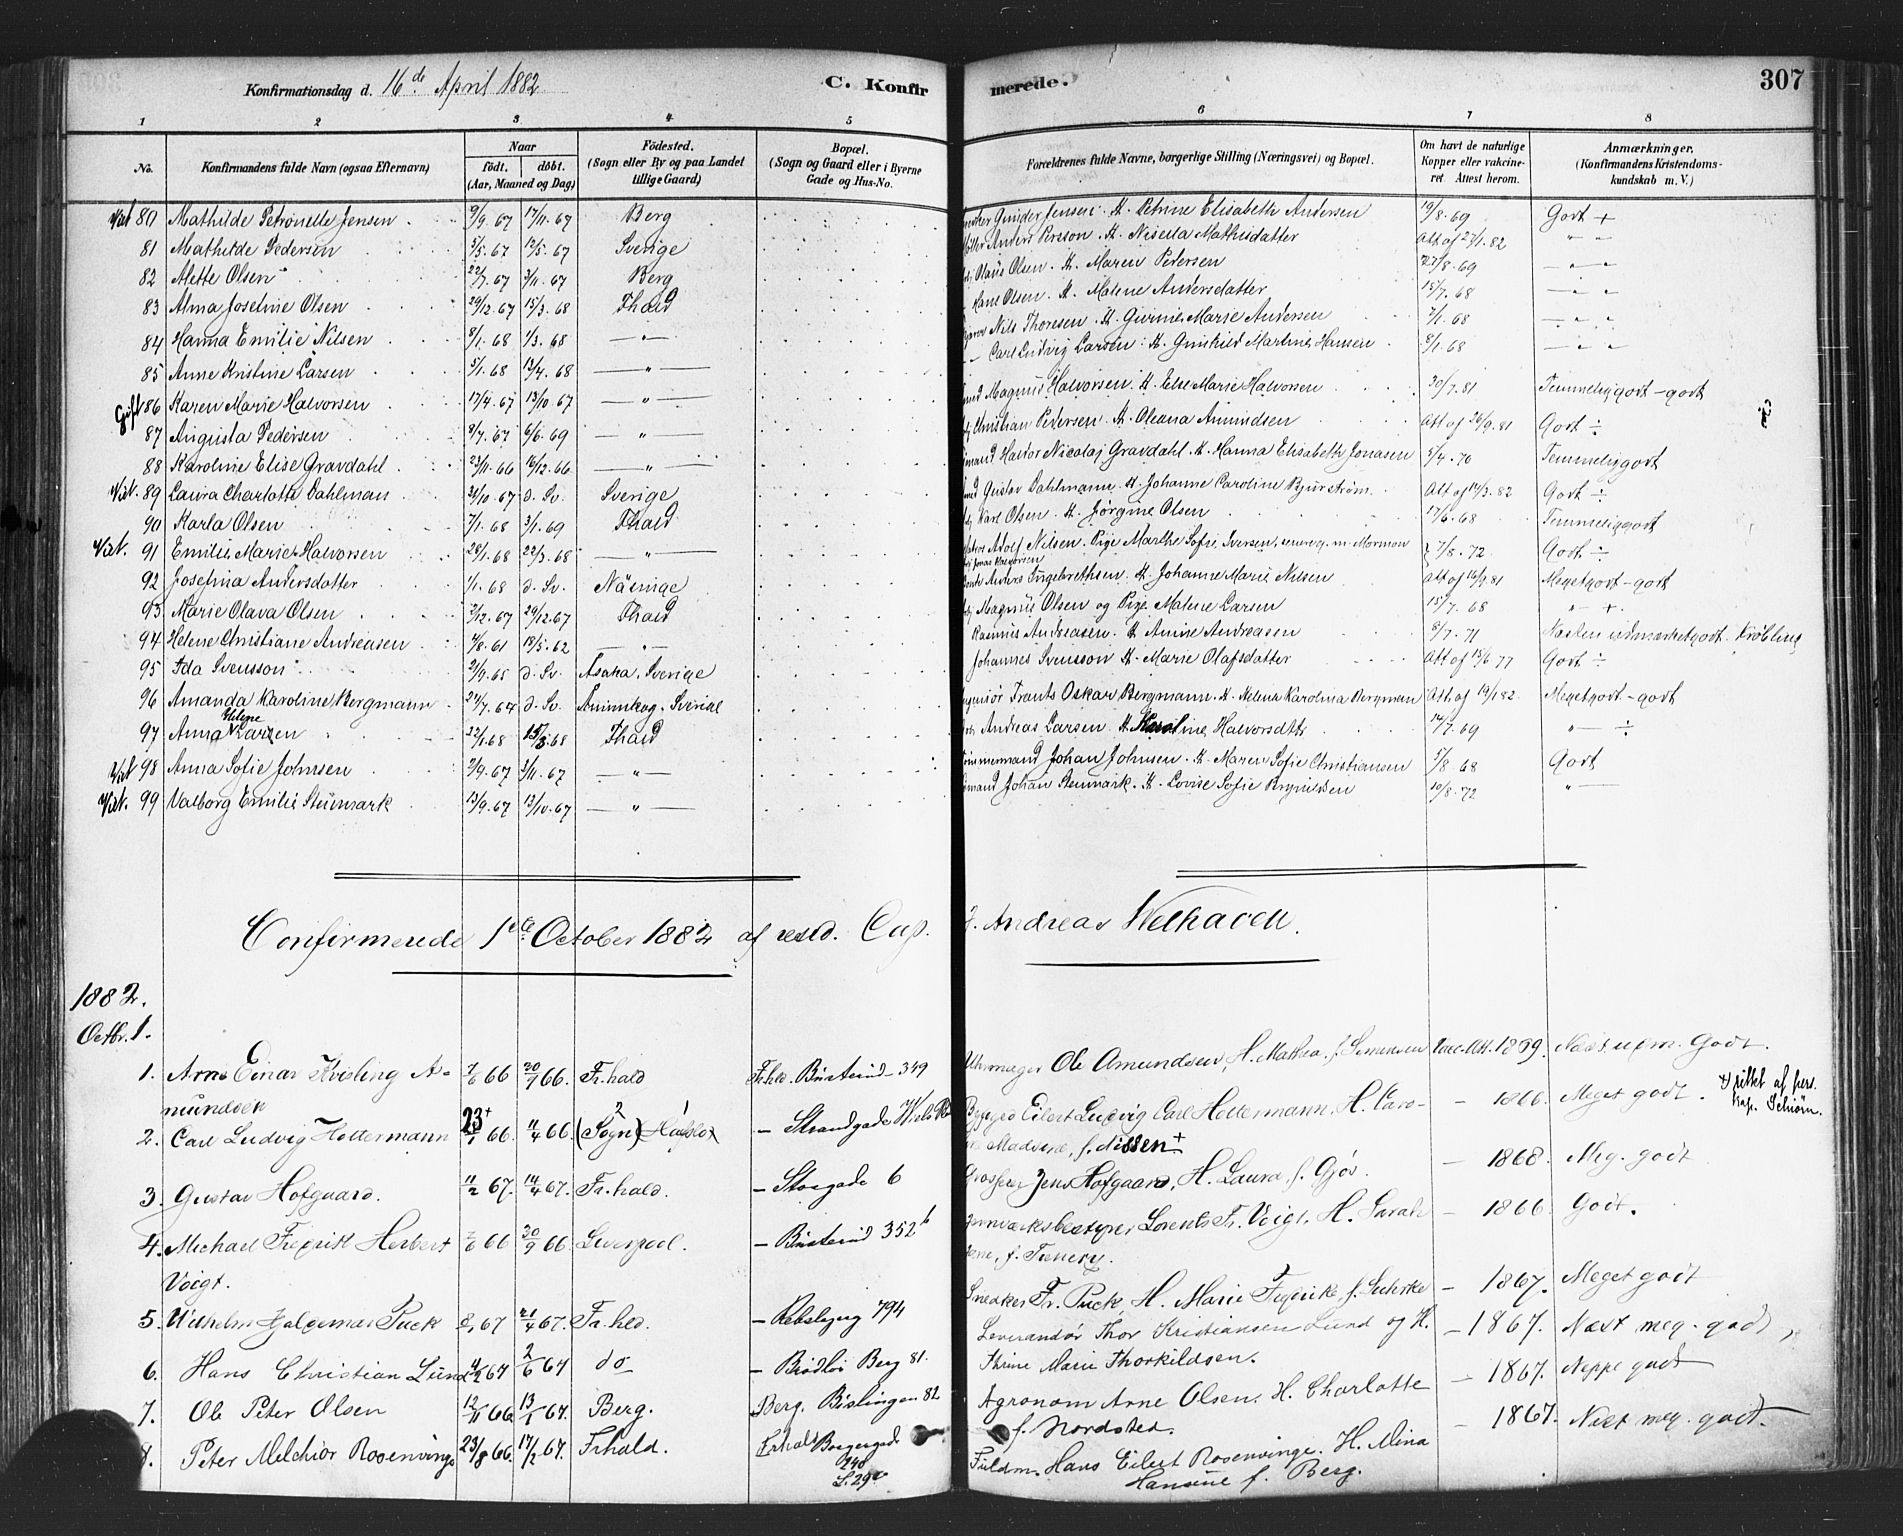 Konfirmationsdag d. 16de April 1882 C. Konfirmerede. 307
1 2 3 4 5 6 7 8
No. Konfirmandens fulde Navn (ogsaa Efternavn) Naar født. døbt. (Aar, Maaned og Dag) Fødested. (Sogn eller By og paa Landet tillige Gaard) Bopæl. (Sogn og Gaard eller i Byerne Gade og Hus-No. Forældrenes fulde Navne, borgerlige Stilling (Næringsvei) og Bopæl. Om havt de naturlige Kopper eller vakcineret Attest herom. Anmærkninger, (Konfirmandens Kristendomskundskab m. V.)
80 Mathilde Petronelle Jensen 9/9 67 17/11 67 Berg Gunder Jensen. H. Petrine Elisabeth Andersen 19/8 69 Godt +
81 Mathilde Pedersen 5/5 67 12/5 67 Sverige Anders Persson. H. Mathisdatter Att af 27/1 82 " -
82 Alette Olsen 22/7 67 3/11 67 Berg Olaus Olsen. H. Maren Petersen 27/8 69 — " -
83 Alma Josefine Olsen 29/12 67 15/3 68 Fhald Hans Olsen. H. Malene Andersdatter 15/7 68 — " -
84 Hanna Emilie Nilsen 8/1 68 1/3 68 — " — Nils Thoresen. H. Gurine Marie Andersen 7/1 68 — " -
85 Anne Kristine Larsen 5/1 68 13/4 68 — " — Carl Ludvig Larsen. H. Gunhild Martine Hansen 8/1 68 — " -
Gift 86 Karen Marie Halvorsen 17/4 67 13/10 67 — " — Magnus Halvorsen. H. Else Marie Halvorsen 20/7 81 Temmelig godt - godt
87 Augusta Pedersen 8/7 67 6/6 69 — " — Christian Pedersen. H. Oleana Amundsen Att af 26/9 81 Godt ÷
88 Karoline Elise Gravdahl 23/11 66 16/12 66 — " — Halvor Nicolaj Gravdahl. H. Hanna Elisabeth Jonasen 5/4 70 Temmelig godt
89 Laura Charlotte Dahlman 21/10 67 d. Sv. Sverige Gustav Dahlmann. H. Johanne Caroline Bjurström Att af 14/3 82 Godt ÷
90 Karla Olsen 7/1 68 3/1 69 Fhald Karl Olsen. H. Jørgine Olsen 17/6 68 Temmelig godt
91 Emilie Marie Halvorsen 28/1 68 22/3 68 — " — Adolf Nilsen. Pige Marthe Sofie Iversen, m. Mormon 7/8 72 Godt ÷
92 Josefina Andersdatter 1/1 68 d. Sv. Näsinge Anders Ingebrethsen. H. Johanne Marie Nilsen Att af 16/9 81 Meget godt - godt
93 Marie Olava Olsen 2/12 67 29/12 67 Fhald Magnus Olsen og Pige Malene Larsen 15/7 68 " +
94 Helene Christiane Andreasen 4/8 61 18/5 62 — " — Rasmus Andreasen. H. Anine Andreasen 8/7 71 Næsten udmærket godt. Krøbling
95 Ida Svensson 2/9 65 d. Sv. Asaka, Sverige Johannes Svensson H. Marie Olafsdatter Att af 15/6 77 Godt ÷
96 Amanda Karoline Bergmann 24/7 64 d. Sv. Sverige Frants Oskar Bergmann. H. Helena Karolina Bergman Att af 19/1 82 Meget godt - godt
97 Anna Helene Larsen 22/1 68 15/3 68 Fhald Andreas Larsen H. Karoline Halvorsdtr 14/7 69 " — ÷
98 Anna Sofie Johnsen 2/9 67 3/11 67 — " — Tømmermand Johan Johnsen. H. Maren Sofie Christiansen 5/8 68 Godt
99 Valborg Emilie Stenmark 13/9 67 13/10 67 — " — Johan Stenmark. H. Lovise Sofie Brynildsen 10/8 72 " —
Confirmerede 1ste October 1882 af resid. Cap. J. Andreas Welhaven.
1882.
Octbr. 1.
1. Arne Einar Kvisling A- 7/6 66 20/7 66. Fr.hald Frhld. Busterud 349 Uhrmager Ole Amundsen, H. Mathea, f. Sørensen Vacc. Att. 1869. Næst udm. Godt.
mundsen
2. Carl Ludvig Holtermann 23/1 66 11/4 66 (Sogn) — Strandgade Eilert Ludvig Carl Holtermann, H. Caro- — 1866. Meget godt. rettet af pers. kap. Schiørn.
Madsine, f. Nissen +
3. Gustav Hofgaard. 11/2 67. 14/4 67. Fr.hald. — Storgade 6 Grosserer Jens Hofgaard, H. Laura f. Gjøs — 1868. Meg. godt
4. Michael Fredrik Herbert 2/6 66 30/9 66 Liverpool. — Busterud 352b Jernværksbestyrer Lorents Fr. Voigt, H. Sarah — 1866 Godt.
Voigt. Jane, f.
5. Vilhelm Hjalgemar Puck 2/1 67 21/4 67. Fr.hld. — Rebslyng 794 Snedker Fr. Puck, H. Marie Fredrike, f. Luhrke — 1867. Meget godt
6. Hans Christian Lund 4/2 67 2/6 67 do — Brødløs Berg 81. Leverandør Thor Kristiansen Lund og H. — 1867. Næst meg. godt
Thrine Marie Thorkildsen.
7. Ole Peter Olsen 12/11 66 13/1 67. Berg. Berg. Bislingen 82 Agronom Arne Olsen. H. Charlotte — 1867. Neppe godt
f. Nordsted.
8. Peter Melchior Rosenvinge 23/8 66. 17/2 67. Frhald. Frhald Borgergade 248 L. 29 Fuldm. Hans Eilert Rosenvinge. H. Mina — 1867. Næst meg. godt.
Hansine f. Berg.